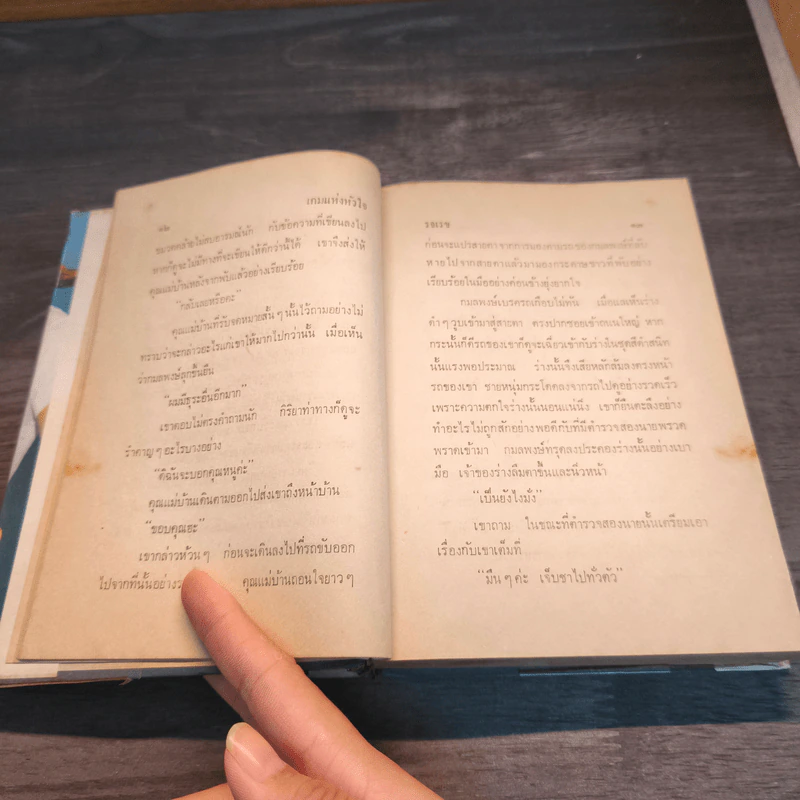 ๑๒ เกมแห่งหัวใจ
ขมวดคล้ายไม่สบอารมณ์นัก กับข้อความที่เขียนลงไป
หากก็ดูจะไม่มีทางที่จะเขียนให้ดีกว่านี้ได้ เขาจึงส่งให้
คุณแม่บ้านหลังจากพับแล้วอย่างเรียบร้อย
"กลับเลยหรือคะ"
คุณแม่บ้านที่รับจดหมายสั้น ๆ นั้นไว้ถามอย่างไม่
ทราบว่าจะกล่าวอะไรแก่เขาให้มากไปกว่านั้น เมื่อเห็น
ว่ากมลพงษ์ลุกขึ้นยืน
"ผมมีธุระอื่นอีกมาก"
เขาตอบไม่ตรงคำถามนัก กิริยาท่าทางก็ดูจะ
รำคาญ ๆ อะไรบางอย่าง
"ดิฉันจะบอกคุณหนูค่ะ"
คุณแม่บ้านเดินตามออกไปส่งเขาถึงหน้าบ้าน
"ขอบคุณฮะ"
เขากล่าวห้วน ๆ ก่อนจะเดินลงไปที่รถขับออก
ไปจากที่นั้นอย่าง คุณแม่บ้านถอนใจยาว ๆ
รจเรข ๑๓
ก่อนจะแปรสายตาจากการมองตามรถของกมลพงษ์ที่ลับ
หายไปจากสายตาแล้วมามองกระดาษขาวที่พับอย่าง
เรียบร้อยในมืออย่างค่อนข้างยุ่งยากใจ
กมลพงษ์เบรครถเกือบไม่ทัน เมื่อแลเห็นร่าง
ดำ ๆ วูบเข้ามาสู่สายตา ตรงปากซอยเข้าถนนใหญ่ หาก
กระนั้นก็ดีรถของเขาก็ดูจะเฉี่ยวเข้ากับร่างในชุดสีดำสนิท
นั้นแรงพอประมาณ ร่างนั้นจึงเสียหลักล้มลงตรงหน้า
รถของเขา ชายหนุ่มกระโดดลงจากรถไปดูอย่างรวดเร็ว
เพราะความตกใจร่างนั้นนอนแน่นิ่ง เขาก็ยืนตะลึงอย่าง
ทำอะไรไม่ถูกสักอย่างพอดีกับที่มีตำรวจสองนายพรวด
พราดเข้ามา กมลพงษ์ทรุดลงประคองร่างนั้นอย่างเบา
มือ เจ้าของร่างลืมตาขึ้นและนิ่วหน้า
"เป็นยังไงมั่ง"
เขาถาม ในขณะที่ตำรวจสองนายนั้นเตรียมเอา
เรื่องกับเขาเต็มที่
"มึน ๆ ค่ะ เจ็บชาไปทั่วตัว"